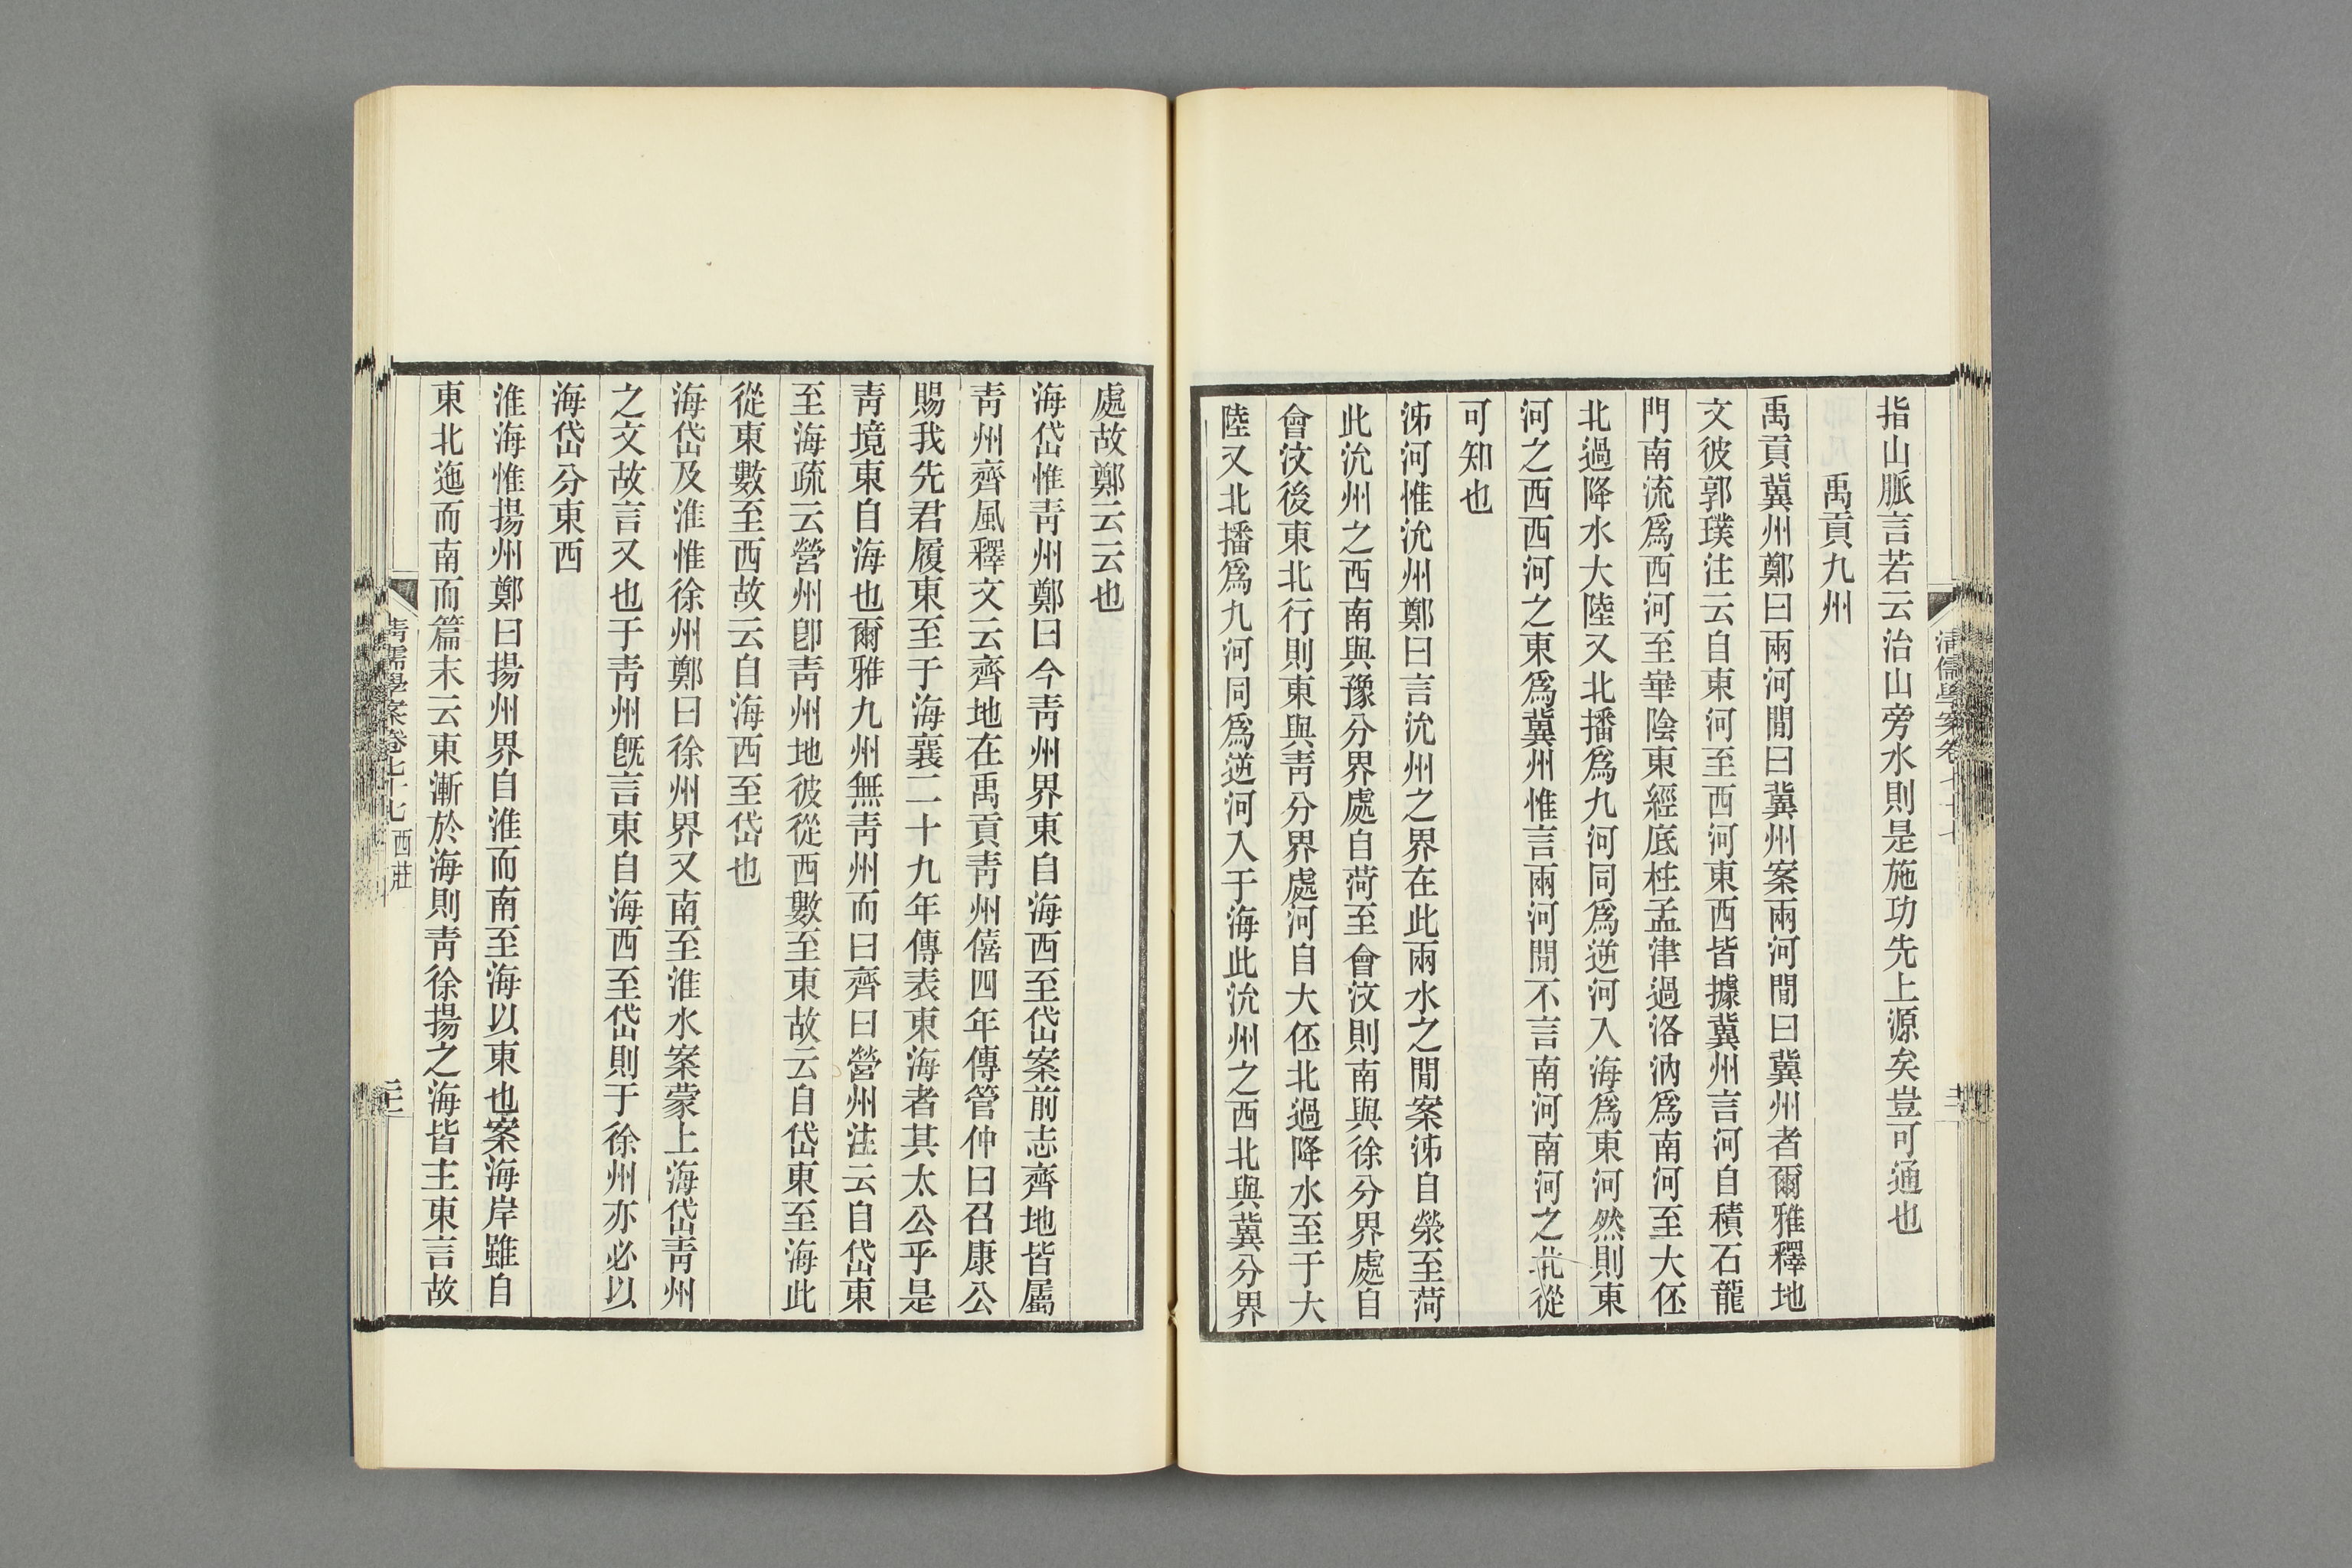 指山脈言若云治山旁水則是施功先上源矣豈可通也
禹貢九州
禹貢冀州鄭曰兩河閒曰冀州案兩河閒曰冀州者爾雅釋地
文彼郭璞注云自東河至西河東西皆據冀州言河自積石龍
門南流爲西河至華陰東經底柱孟津過洛汭爲南河至大伾
北過降水大陸又北播爲九河同爲逆河入海爲東河然則東
河之西西河之東爲冀州惟言兩河閒不言南河南河之北從
可知也
泲河惟沇州鄭曰言沇州之界在此兩水之閒案泲自滎至菏
此沇州之西南與豫分界處自菏至會汶則南與徐分界處自
會汶後東北行則東與靑分界處河自大伾北過降水至于大
陸又北播爲九河同爲逆河入于海此沇州之西北與冀分界
處故鄭云云也
海岱惟靑州鄭曰今靑州界東自海西至岱案前志齊地皆屬
靑州齊風釋文云齊地在禹貢靑州僖四年傳管仲曰召康公
賜我先君履東至于海襄二十九年傳表東海者其太公乎是
靑境東自海也爾雅九州無靑州而曰齊曰營州注云自岱東
至海疏云營州卽靑州地彼從西數至東故云自岱東至海此
從東數至西故云自海西至岱也
海岱及淮惟徐州鄭曰徐州界又南至淮水案蒙上海岱靑州
之文故言又也于靑州旣言東自海西至岱則于徐州亦必以
海岱分東西
淮海惟揚州鄭曰揚州界自淮而南至海以東也案海岸雖自
東北迤而南而篇末云東漸於海則靑徐揚之海皆主東言故
淸儒學案卷七十七 西莊